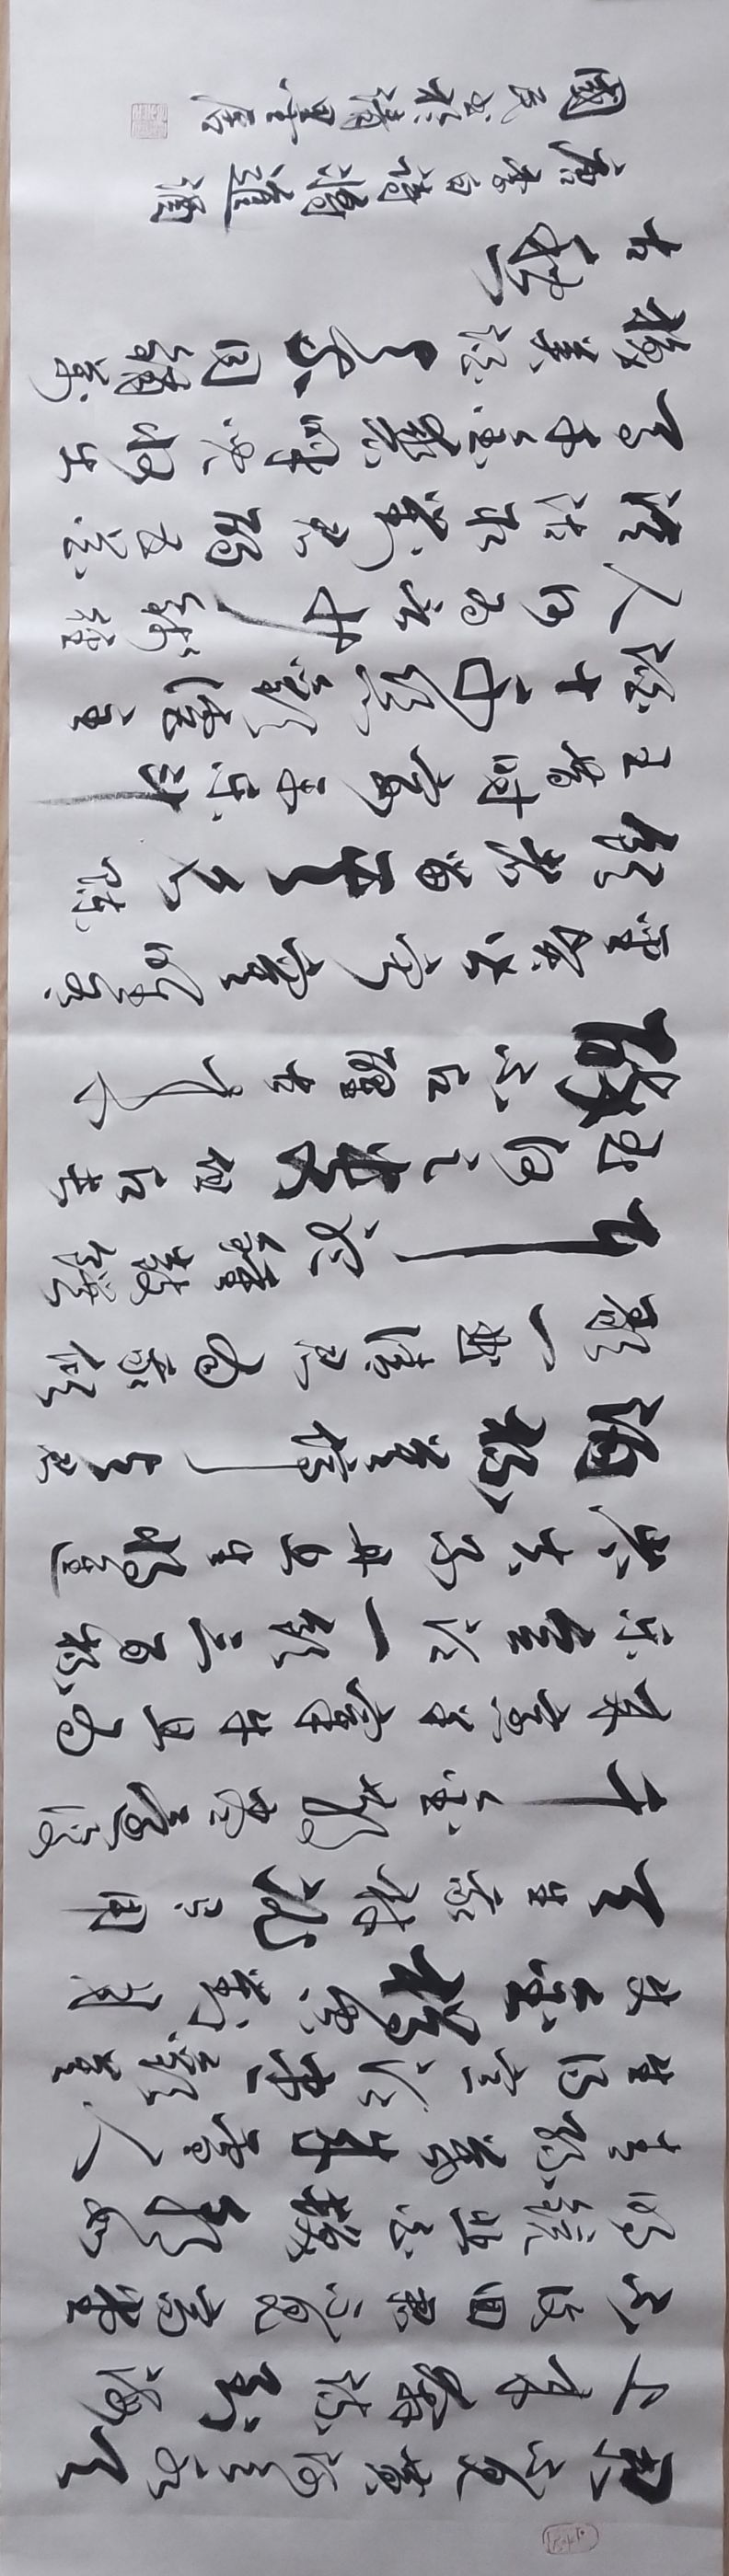 君不見黃河之水天
上來奔流到海
不復回君不見高堂
明鏡悲白髮朝如
青絲暮成雪人
生得意須盡歡莫
使金樽空對月
天生我材必有用
千金散盡還復
來烹羊宰牛且為
樂會須一飲三百杯
岑夫子丹丘生將進
酒杯莫停與君
歌一曲請君為我傾
耳聽鐘鼓饌
玉何足貴但願長
醉不願醒古來
聖賢皆寂寞惟有
飲者留其名陳
王昔時宴平樂斗
酒十千恣歡謔主
人何為言少錢徑
須沽取對君酌五花
馬千金裘呼兒將出
換美酒與爾同銷萬
古愁
唐李白詩將進酒
國民書於清墨居